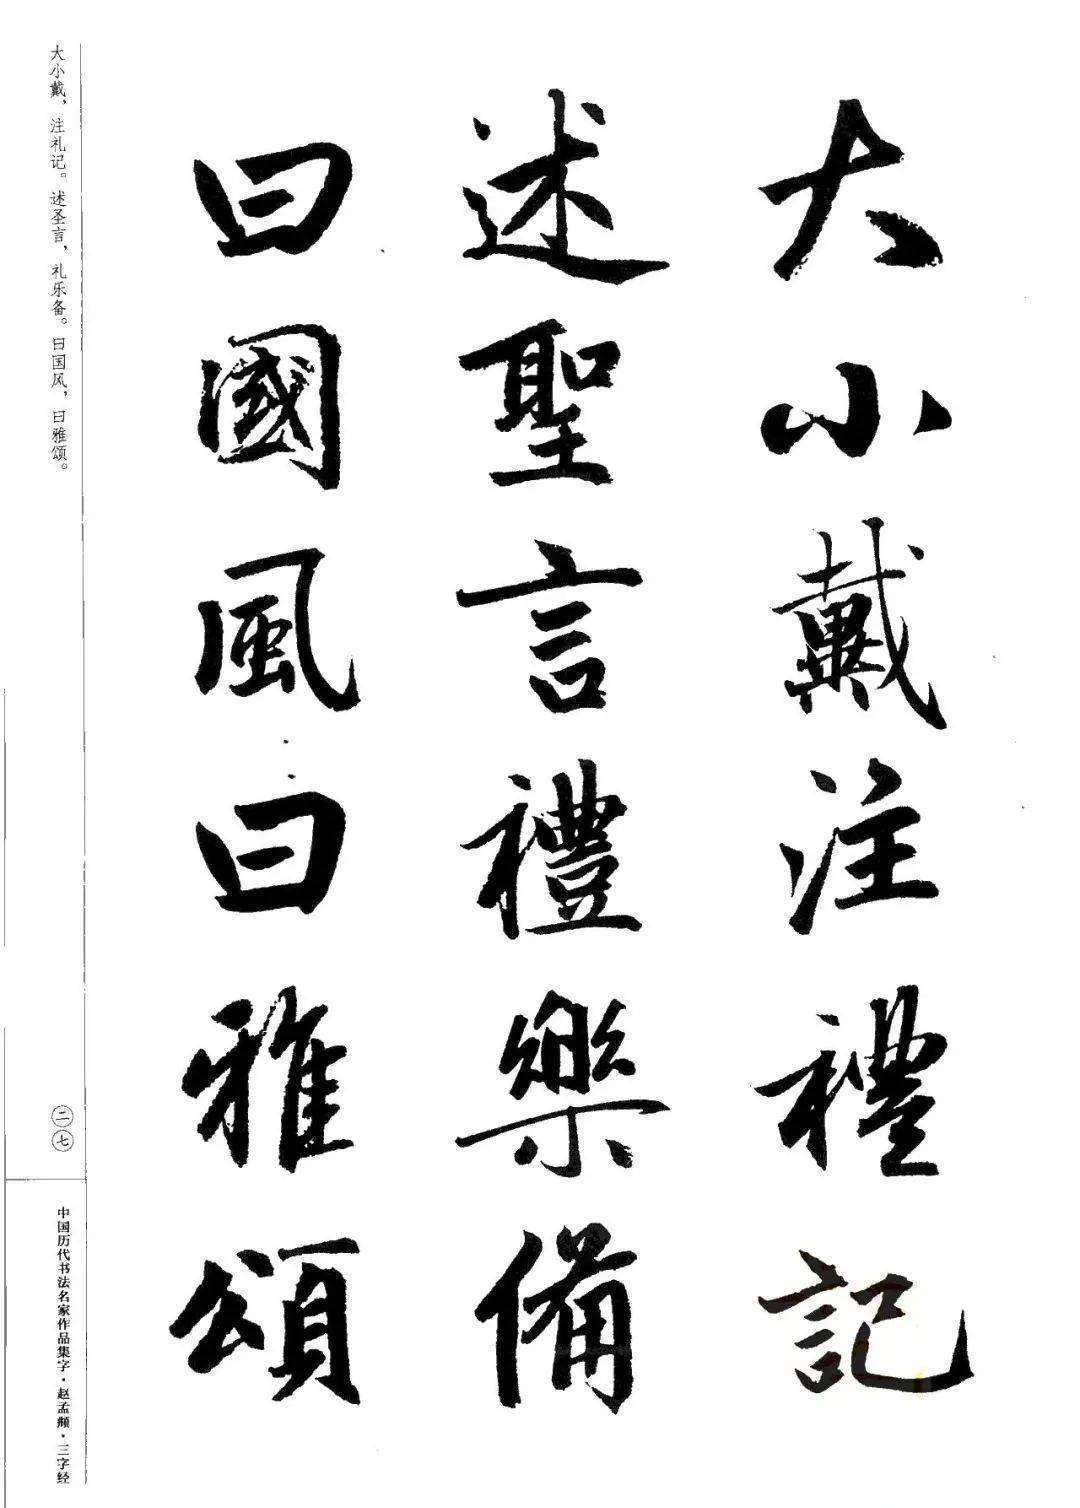 大小戴注禮記
述聖言禮樂備
曰國風曰雅頌
大小戴，注礼记。述圣言，礼乐备。曰国风，曰雅颂。
二七
中国历代书法名家作品集字·赵孟頫·三字经